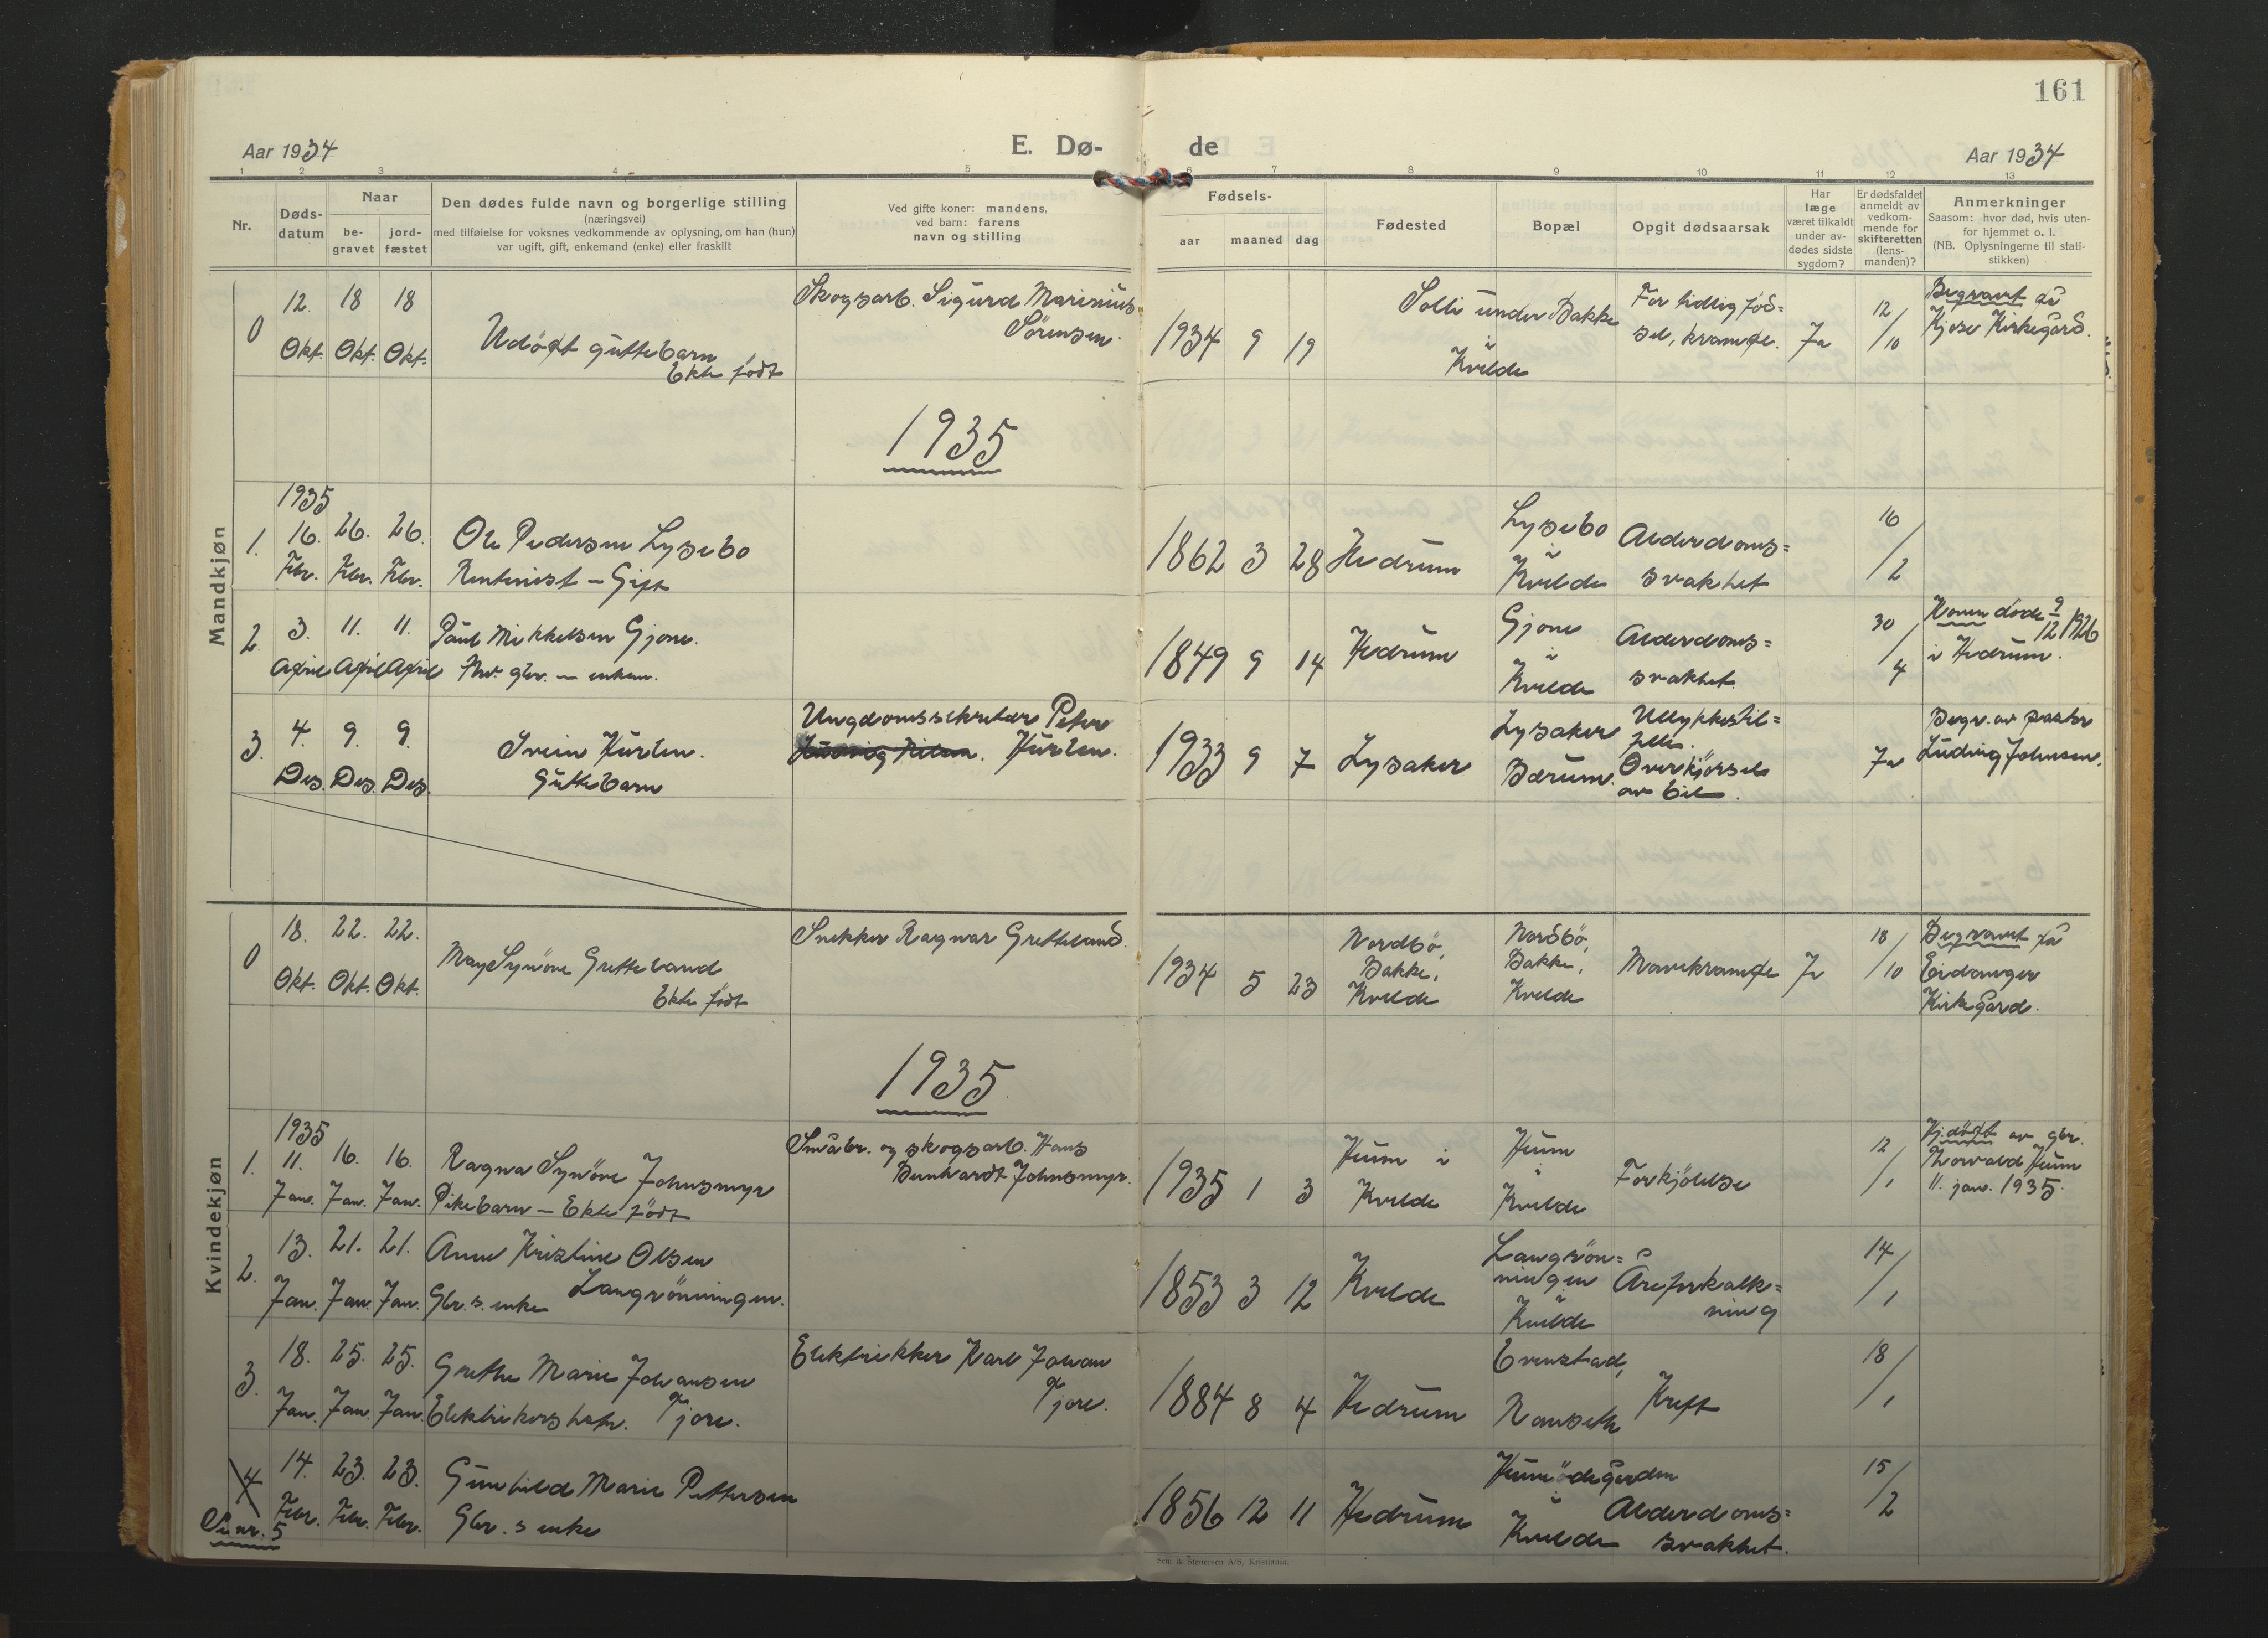 161
Aar 1934
E. Dø-
de
Aar 1934
1 2 3 4 5 6 7 8 9 10 11 12 13
Nr.
Døds-
datum
Naar
be-
gravet
jord-
fæstet
Den dødes fulde navn og borgerlige stilling
(næringsvei)
med tilføielse for voksnes vedkommende av oplysning, om han (hun)
var ugift, gift, enkemand (enke) eller fraskilt
Ved gifte koner: mandens,
ved barn: farens
navn og stilling
Fødsels-
aar maaned dag
Fødested
Bopæl
Opgit dødsaarsak
Har
læge
været tilkaldt
under av-
dødes sidste
sygdom?
Er dødsfaldet
anmeldt av
vedkom-
mende for
skifteretten
(lens-
manden)?
Anmerkninger
Saasom: hvor død, hvis uten-
for hjemmet o. l.
(NB. Oplysningerne til stati-
stikken)
Mandkjøn
0
12. 18 18
Okt. Okt. Okt.
Udöpt guttebarn
Ekte født
Skogsarb. Sigurd Marinius
Sörensen.
1934 9 19
Solli under Bakke
i
Kvelde
For tidlig fød=
sel, krampe.
Ja
12/10
Begravet på
Kjose Kirkegård.
1935
1935
1. 16. 26. 26.
Febr. Febr. Febr.
Ole Pedersen Lysebo
Rentenist - Gift
1862 3 28 Hedrum
Lysebo
i
Kvelde
Alderdoms=
svakhet
16/2
2. 3. 11. 11.
April April April
Paul Mikkelsen Gjone.
Fhv. gbr. - enkem.
1849 9 14 Hedrum
Gjone
i
Kvelde
Alderdoms=
svakhet
30/4
Konen døde 9/12 1926
i Hedrum.
3. 4. 9. 9.
Des. Des. Des.
Svein Hürlen.
Guttebarn
Ungdomssekretær Peter
Ludvig Hürlen.
1933 9 7 Lysaker
Lysaker
Bærum.
Ulykkestil=
felle.
Overkjörsel
av bil.
Ja
Begr. av pastor
Ludvig Johnsen.
Kvindekjøn
0
18. 22. 22.
Okt. Okt. Okt.
May Synöve Gretteland
Ekte født
Snekker Ragnar Gretteland.
1934 5 23
Nordbö,
Bakke,
Kvelde
Nordbö,
Bakke,
Kvelde
Mavekrampe
Ja
18/10
Begravet på
Eidanger
Kirkegård.
1935
1935
1. 11. 16. 16.
Jan. Jan. Jan.
Ragna Synöve Johnsmyr
Pikebarn - Ekte født
Småbr. og skogsarb. Hans
Bernhardt Johnsmyr.
1935 1 3
Heum i
Kvelde
Heum
i
Kvelde
Forkjölelse
12/1
Hj.döpt av gbr.
Thorvald Heum
11. jan. 1935.
2. 13. 21. 21.
Jan. Jan. Jan.
Anne Kristine Olsen
Gbr.s. enke Langrönningen.
1853 3 12 Kvelde
Langrön=
ningen
i
Kvelde
Åreforkalk=
ning
14/1
3. 18. 25. 25.
Jan. Jan. Jan.
Grethe Marie Johansen
Elektrikers hstr. Tjore.
Elektrikker Karl Johan
Tjore.
1884 8 4 Hedrum
Evenstad,
Nanseth
Kreft
18/1
4 14. 23. 23.
Se nr. 5 Febr. Febr. Febr.
Gunhild Marie Pettersen
Gbr.s enke
1856 12 11 Hedrum
Heumödegården
i
Kvelde
Alderdoms=
svakhet.
15/2
Sem & Stenersen A/S, Kristiania.